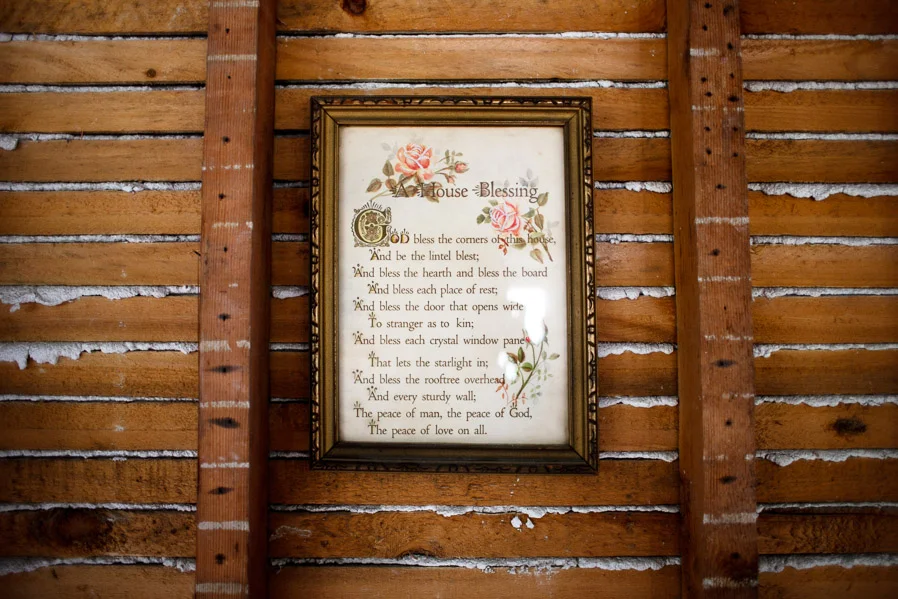 A House Blessing
God bless the corners of this house,
And be the lintel blest;
And bless the hearth and bless the board
And bless each place of rest;
And bless the door that opens wide
To stranger as to kin;
And bless each crystal window pane
That lets the starlight in;
And bless the rooftree overhead
And every sturdy wall;
The peace of man, the peace of God,
The peace of love on all.